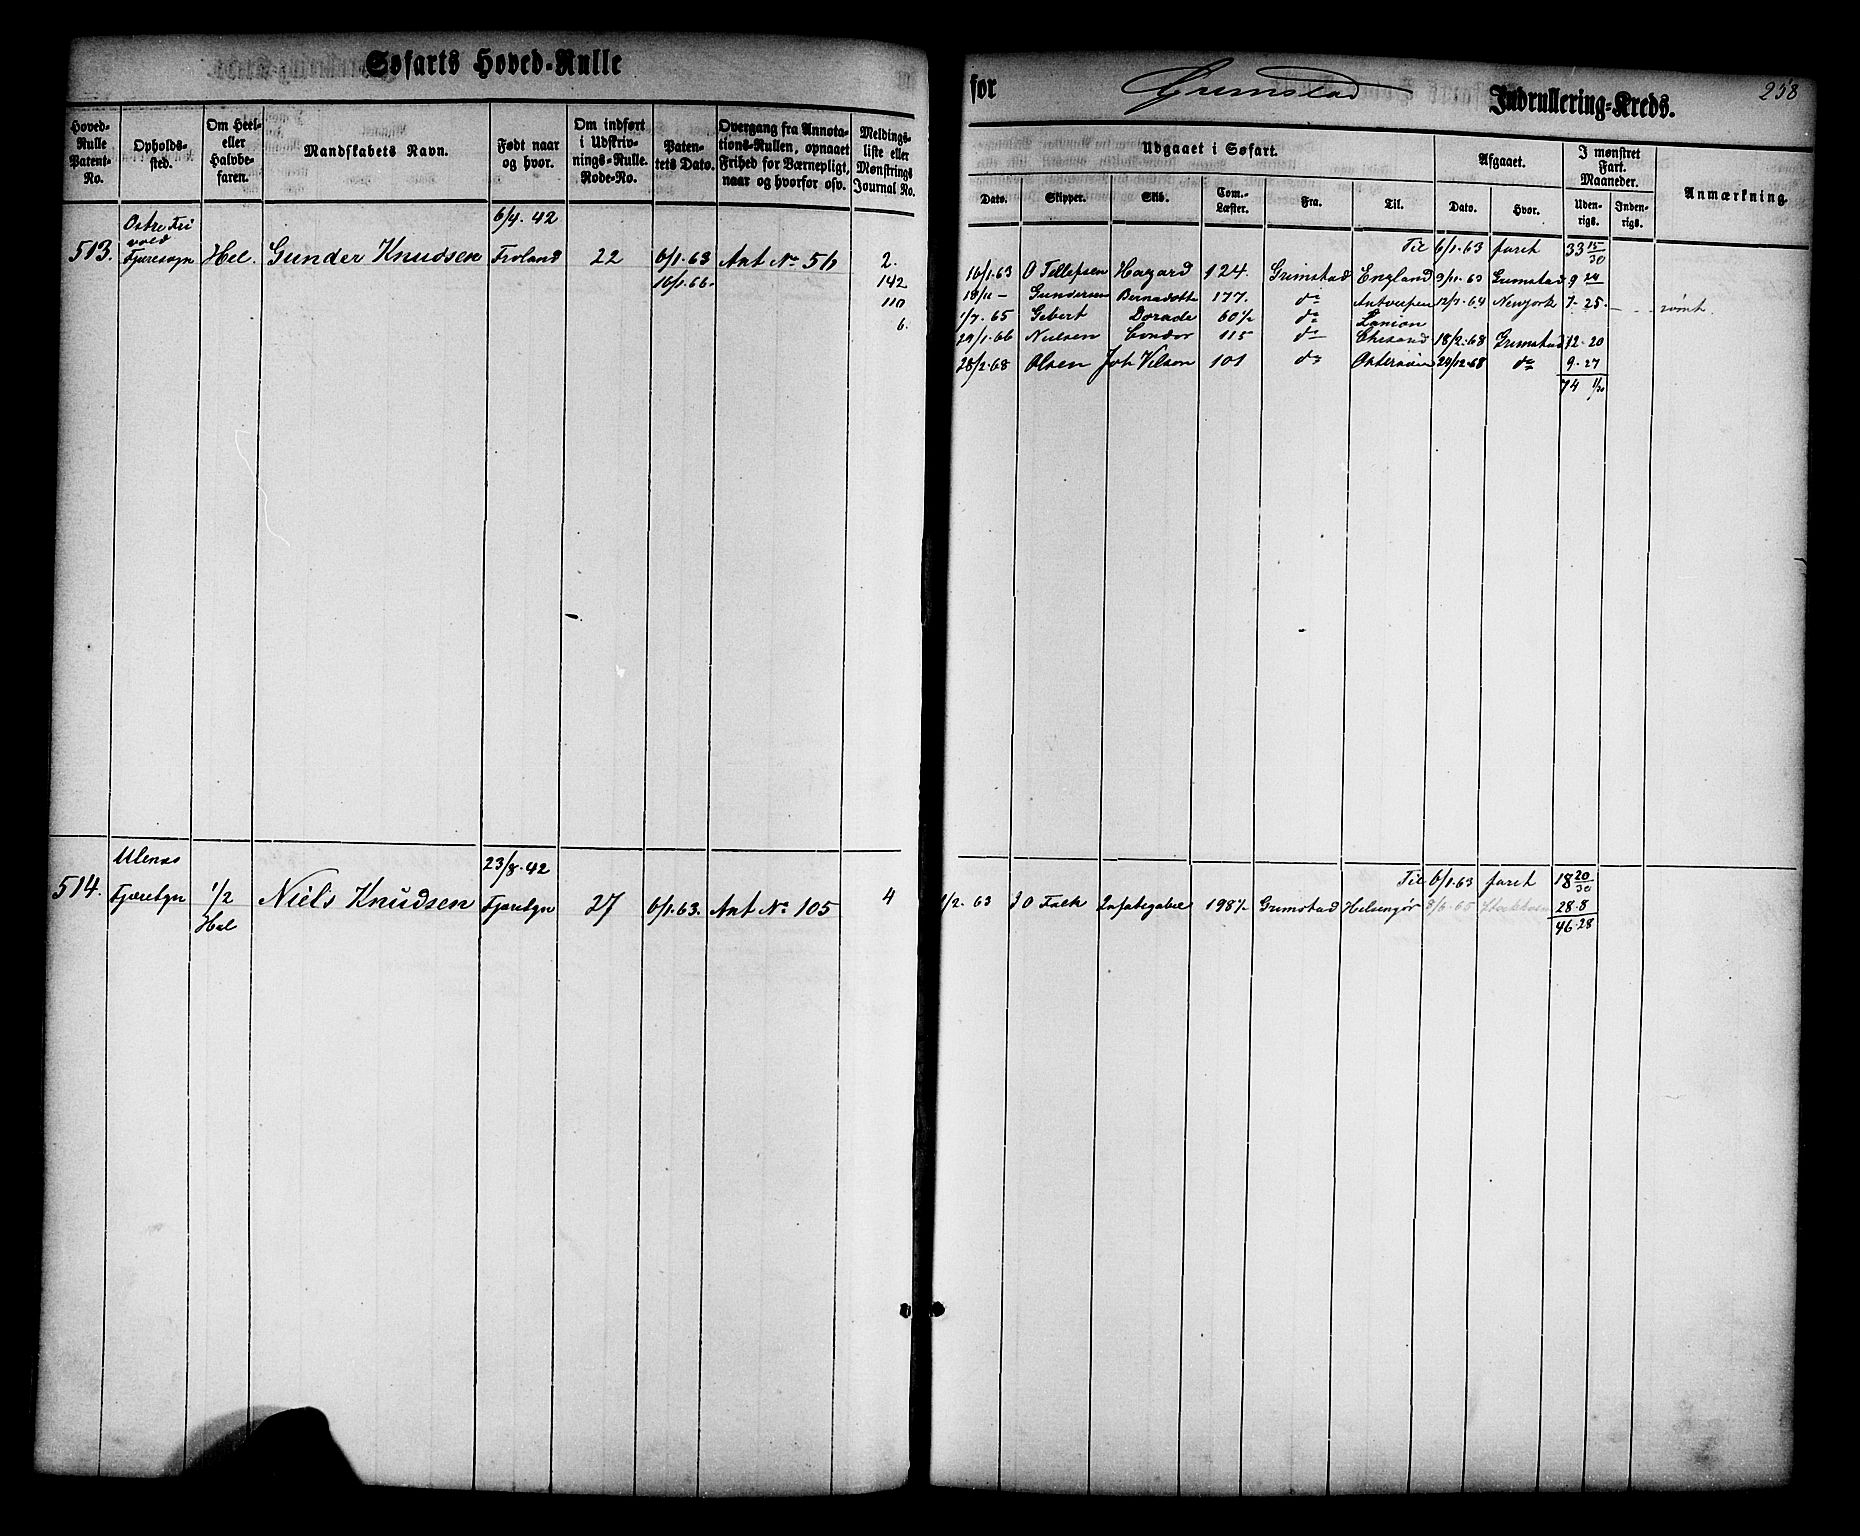 Søfarts Hoved-Rulle
for Grimstad Indrullering-Kreds.
258
Hoved-Rulle Patent-No.
Opholds-sted.
Om Heel- eller Halvbe-faren.
Mandskabets Navn.
Født naar og hvor.
Om indført i Udskriv-nings-Rulle. Rode-No.
Paten-tets Dato.
Overgang fra Annota-tions-Rullen, opnaaet Frihed for Værnepligt, naar og hvorfor osv.
Meldings-liste eller Mønstrings Journal No.
Udgaaet i Søfart.
Dato.
Skipper.
Skib.
Com.-Læster.
Fra.
Til.
Afgaaet.
Dato.
Hvor.
I mønstret Fart. Maaneder.
Uden-rigs.
Inden-rigs.
Anmærkning.
6/4. 42
513. Fjæresogn Hel. Gunder Knudsen Froland 22 6/1.63 Ant No 56 2.
16/1.66. 142
110
6.
Til 6/1.63 faret 33 15/30
10/1.63 O Tellefsen Hazard 124. Grimstad England 9/11.63 Grimstad 9 24
18/11 — Gundersen Bernadotte 177. do Antverpen 12/7.64 Newyork 7-25 rømt.
1/7.65 Gebert Dorade 60½ do
29/1.66 Nielsen Condor 115 do 18/2.68 Grimstad 12-20
28/2.68 Olsen Joh Vilson 101 do Østersøen 24/12.68 do 9-27
74 1/30
Ulenæs 23/8.42
514. Fjæresgn 1/2 Niels Knudsen Fjæresgn 27 6/1.63. Ant No 105 4
Hel
Til 6/1.63 faret 18 20/30
1/2. 63 J O Falk 198½ Grimstad Helsingør 28-8
46-28